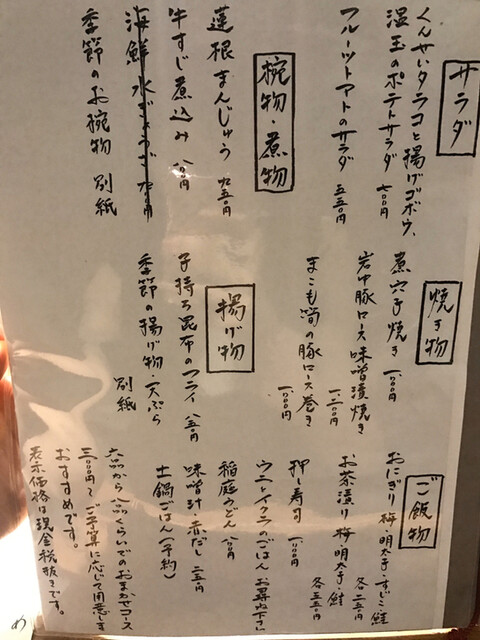 サラダ
くんせいタラコと揚げゴボウ、
温玉のポテトサラダ 七〇〇円
フルーツトマトのサラダ 五五〇円
椀物・煮物
蓮根まんじゅう 九五〇円
牛すじ煮込み 八〇〇円
海鮮水ぎょうざ 七五〇円
季節のお椀物 別紙
焼き物
煮穴子焼き 一、〇〇〇円
岩中豚ロース味噌漬焼き 一、二〇〇円
まこも筍の豚ロース巻き 一、〇〇〇円
揚げ物
子持ち昆布のフライ 八五〇円
季節の揚げ物・天ぷら
別紙
ご飯物
おにぎり 梅 明太子・すじこ 鮭
各二五〇円
お茶漬け 梅 明太子 鮭
各五五〇円
押し寿司 一、〇〇〇円
ウニとイクラのごはん お尋ね下さい
稲庭うどん 八〇〇円
味噌汁 赤だし 二五〇円
土鍋ごはん(予約)
六品から八品くらいでのおまかせコース
ご予算に応じて用意します
おすすめです。
表示価格は現金税抜きです。
め